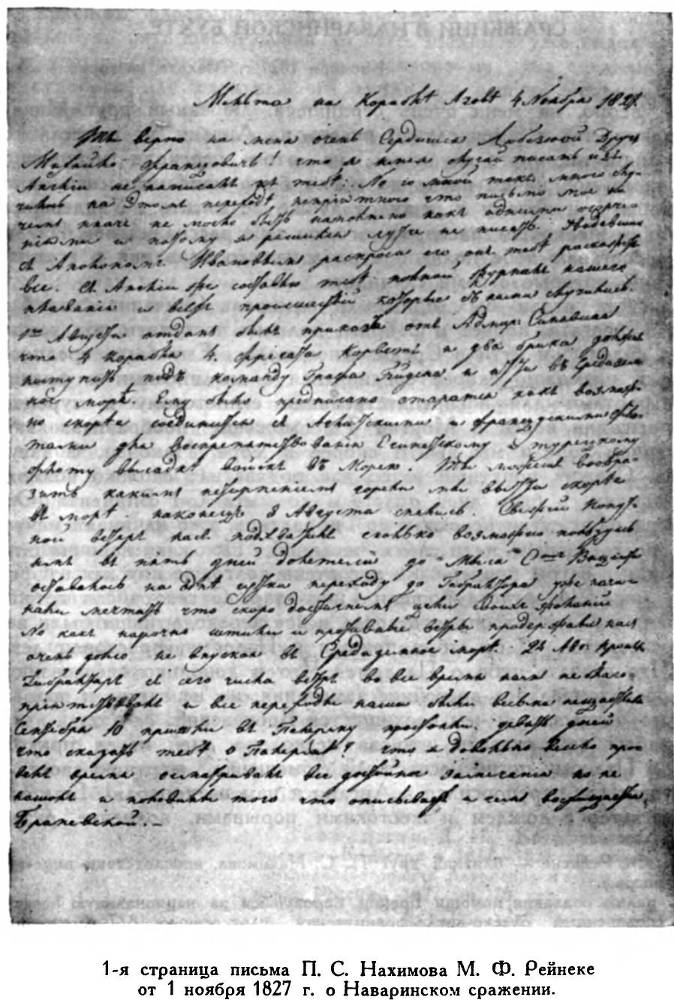 Мальта на Корабле Азовъ 4 Ноября 1827.
Ты верно на меня очень Сердишся Любезной Другъ
Михайло Францовичь! что я имея случай писать изъ
Англіи не написалъ къ тебѣ: Но со мной такъ много слу-
чилось на этомъ переходѣ непріятного что письмо мое ни
чемъ иначе не могло быть наполнено какъ одними огорче-
ніями и потому я решился лутче не писать.
съ Ивановымъ распроси его онъ тебѣ раскажетъ
все. Съ Англіи же составлю тебѣ полной журналъ нашего
плаванія и всѣхъ происшествій которые съ нами случились.
1го Августа отданъ былъ приказъ отъ Адмир: Синявина
что 4 корабля 4. фрегата Корветъ и два брика должны
поступить подъ команду Графа Гейдена. и идти въ Средизем
ное море. Ему было предписано стараться какъ возмож-
но скорѣе соединиться съ Англискими и французскими фло-
тами для воспрепятствованія Египетскому и турецкому
флоту высадки войскъ въ Морею. Ты можешь вообра-
зить какимъ нетерпѣніемъ горели мы выдти скорѣе
въ морѣ. наконецъ 8 Августа снялись. Свежій попут-
ной ветръ насъ подхватилъ столько возможно
въ пять дней долетели до Мыса С Винцента
оставалось на дни сутки переходу до Гибралтара уже начи-
нали мечтать что скоро достигнемъ цели своихъ желаній
Но какъ нарочно штили и противные ветры продержали насъ
очень долго не впуская въ Средиземное море. 24 Авг: прошли
Гибралтаръ съ сего числа ветръ во все время намъ не благо-
пріятствовалъ и все переходы наши были весьма нещастливы
Сентебря 10 пришли въ Палерму простояли девять дней
что сказать тебѣ о Палермѣ? что я довольно весело про
велъ время осматривалъ все достойное замечанія но не
нашолъ и половины того что описываетъ и чемъ восхищается
Браневской. –
1-я страница письма П. С. Нахимова М. Ф. Рейнеке
от 1 ноября 1827 г. о Наваринском сражении.